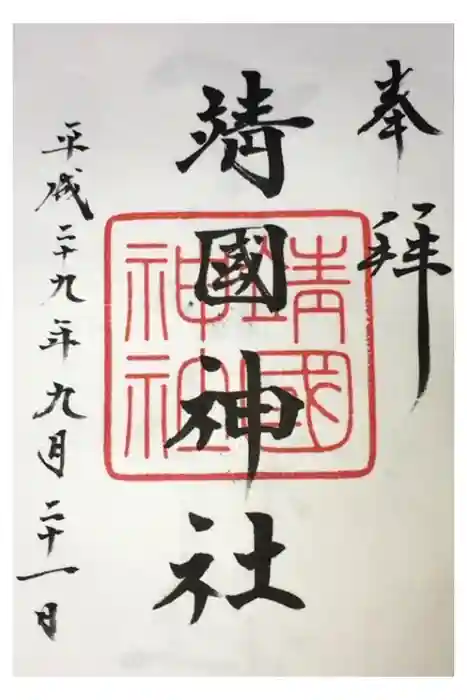 奉拜
靖國神社
靖國神社
平成二十九年九月二十一日